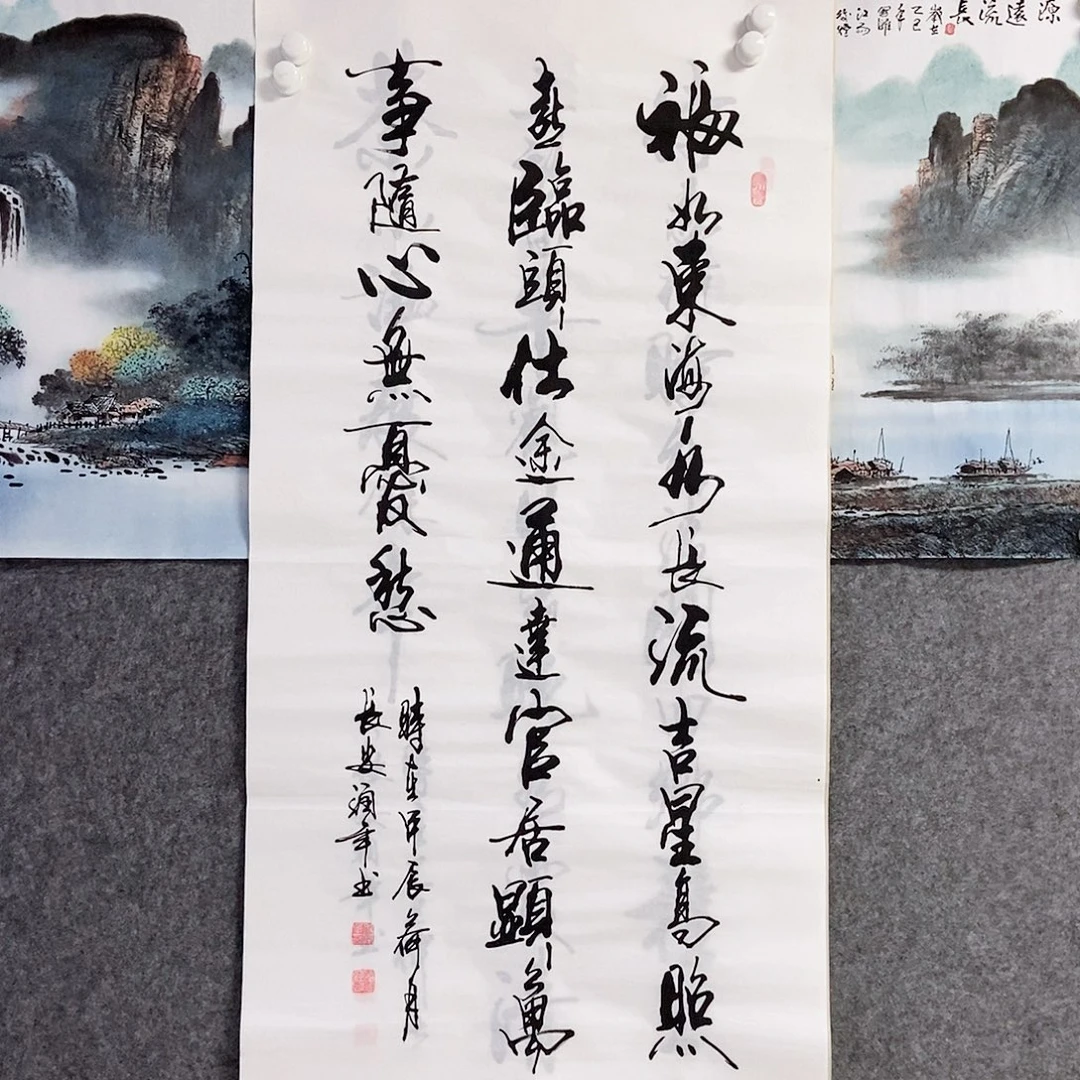 福如東海水長流吉星高照
喜臨頭仕途通達官居顯萬
事隨心無憂愁
時在甲辰荷月
長安
书
源遠流長
歲在
乙巳